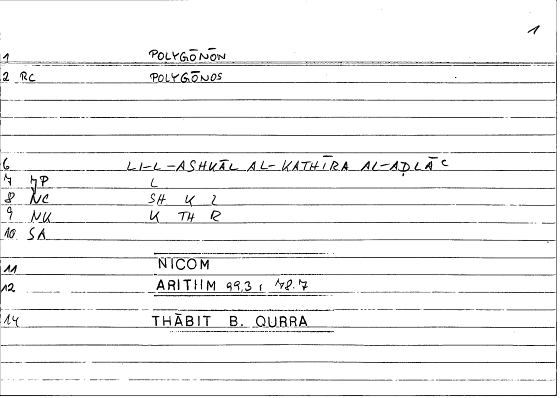 1
1 POLYGŌNŌN
2 RC POLYGŌNOS
6 LI-L-ASHKĀL AL-KATHĪRA AL-AḌLĀʿ
7 JP L
8 NC SH K L
9 NK K TH R
10 SA
11 NICOM
12 ARITHM 99.3 ; 78.7
14 THĀBIT B. QURRA